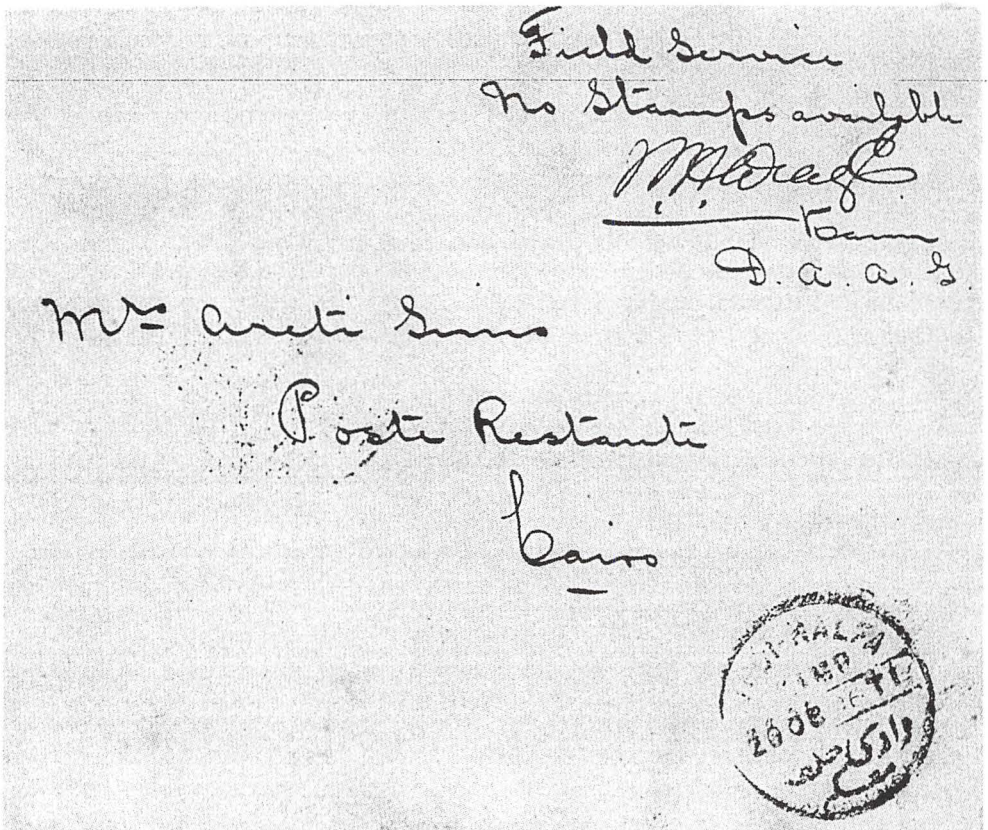 Field Service
No Stamps available
D. A. A. G.
Mrs Areti
Poste Restante
Cairo
HALFA
وادي حلفا